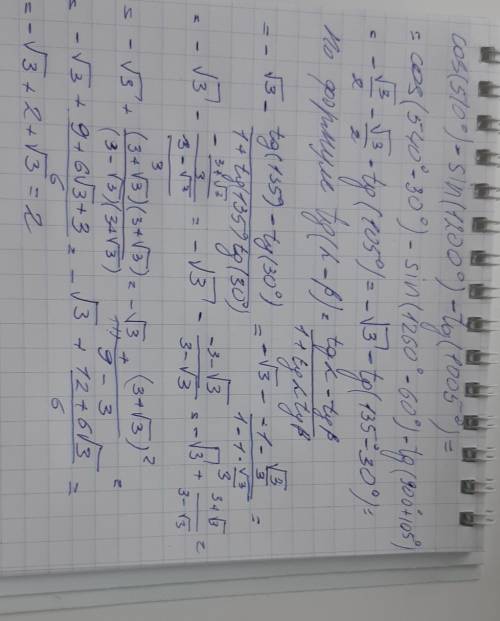 cos(510°) - sin(1200°) - tg(1005°) =
= cos(540°-30°) - sin(1260°-60°) - tg(900°+105°)
= -√3/2 - √3/2 - tg(105°) = -√3 - tg(135°-30°) =
По формуле tg(α-β) = (tgα - tgβ)/(1 + tgα tgβ)
= -√3 - (tg(135°) - tg(30°))/(1 + tg(135°)tg(30°)) = -√3 - (-1 - √3/3)/(1 - 1·√3/3) =
= -√3 - (-(3+√3)/3)/((3-√3)/3) = -√3 - (-3-√3)/(3-√3) = -√3 + (3+√3)/(3-√3) =
= -√3 + ((3+√3)(3+√3))/((3-√3)(3+√3)) = -√3 + (3+√3)²/(9-3) =
= -√3 + (9+6√3+3)/6 = -√3 + (12+6√3)/6 =
= -√3 + 2 + √3 = 2